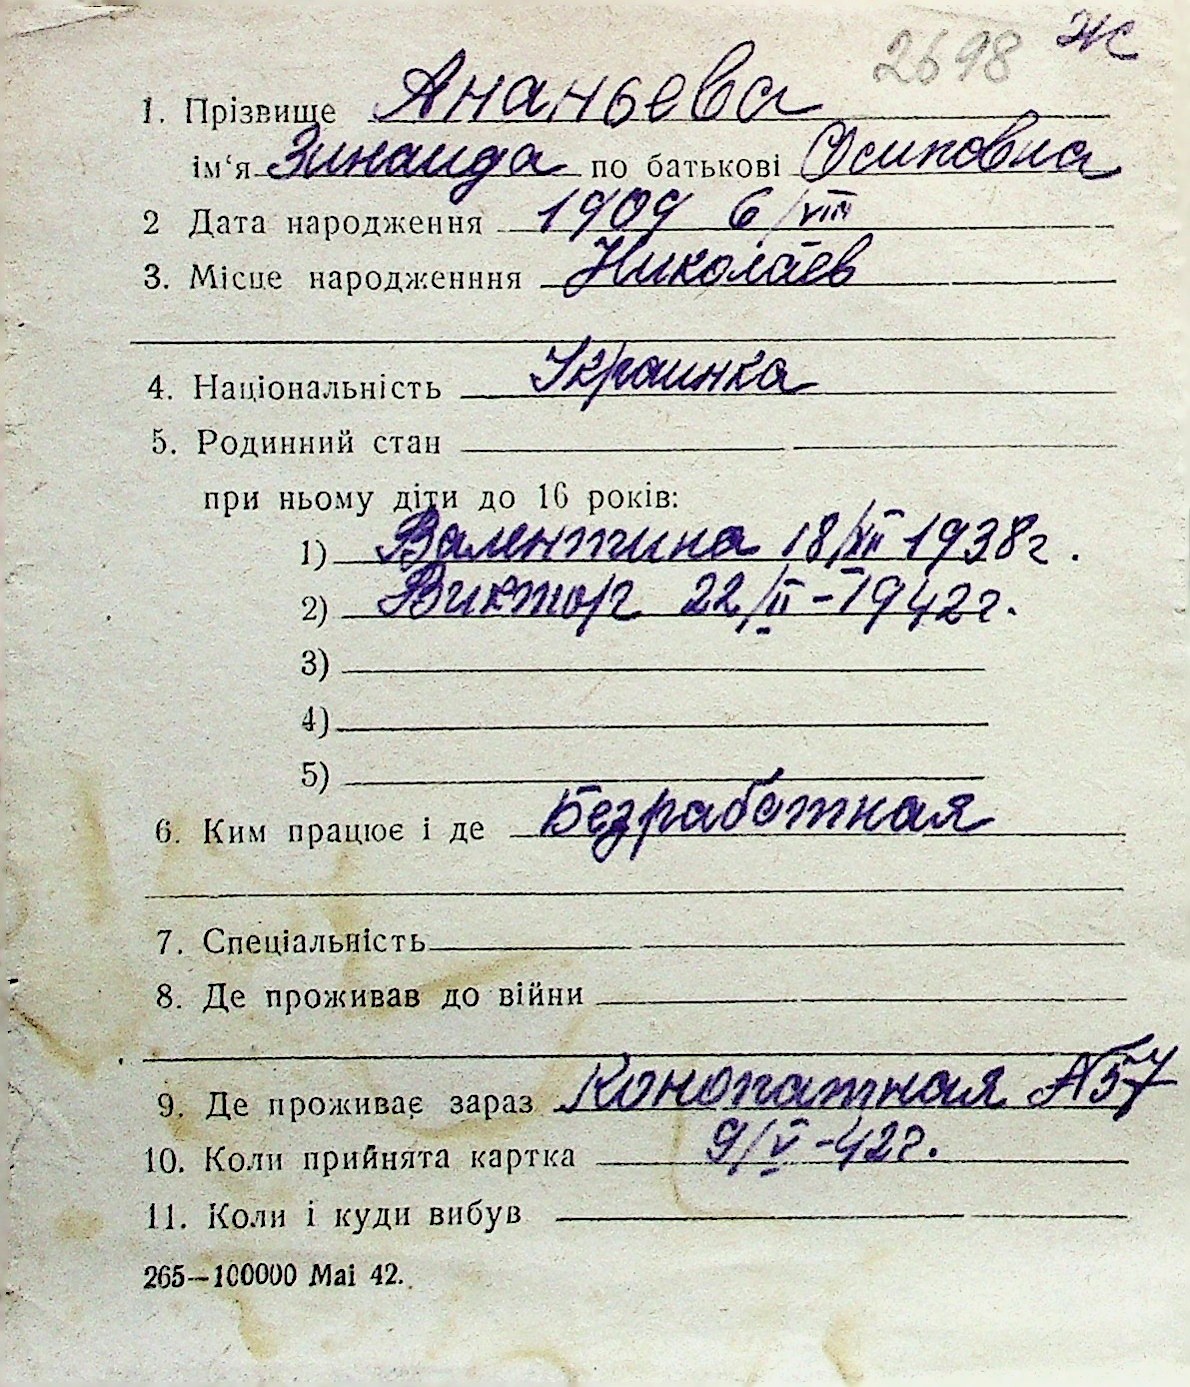 2698 Ж
1. Прізвище Ананьева
ім‘я Зинаида по батькові Осиповна
2 Дата народження 1909 6/VIII
3. Місце народженння Николаев
4. Національність Украинка
5. Родинний стан
при ньому діти до 16 років:
1) Валентина 18/XII 1938г.
2) Виктор 22/II-1942г.
3)
4)
5)
6. Ким працює і де Безработная
7. Спеціальність
8. Де проживав до війни
9. Де проживає зараз Конопатная №57
10. Коли прийнята картка 9/V-42г.
11. Коли і куди вибув
265—100000 Mai 42.